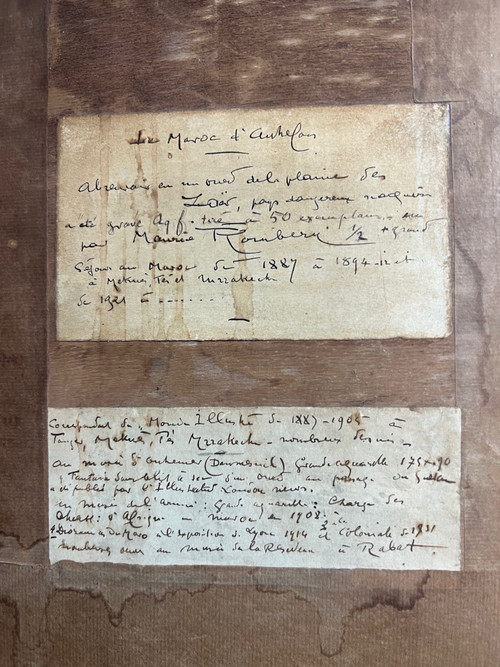 Le Maroc d'Autrefois
Abreuvoir en un oued de la plaine des
Zaër, pays dangereux
a été gravé tiré à 50 exemplaires
par Maurice Romberg 1/2 grand
Séjour au Maroc de 1887 à 1894
à Meknès Fès et Marrakech
de 1921 à ........
Correspondant du Monde Illustré de 1887-1905 à
Tanger, Meknès, Fès Marrakech - nombreux dessins
au musée d' Grande aquarelle 175 × 90
d'un oued au passage du Sultan
publié par l'Illustrated London News.
au musée de l'armée: Grande aquarelle: Charge des
Chass: d'Afrique au Maroc en 1908:
4 Dioramas du Maroc à l'Exposition de Lyon 1914 et Coloniale de 1931
nombreuses au musée de la Résidence à Rabat.